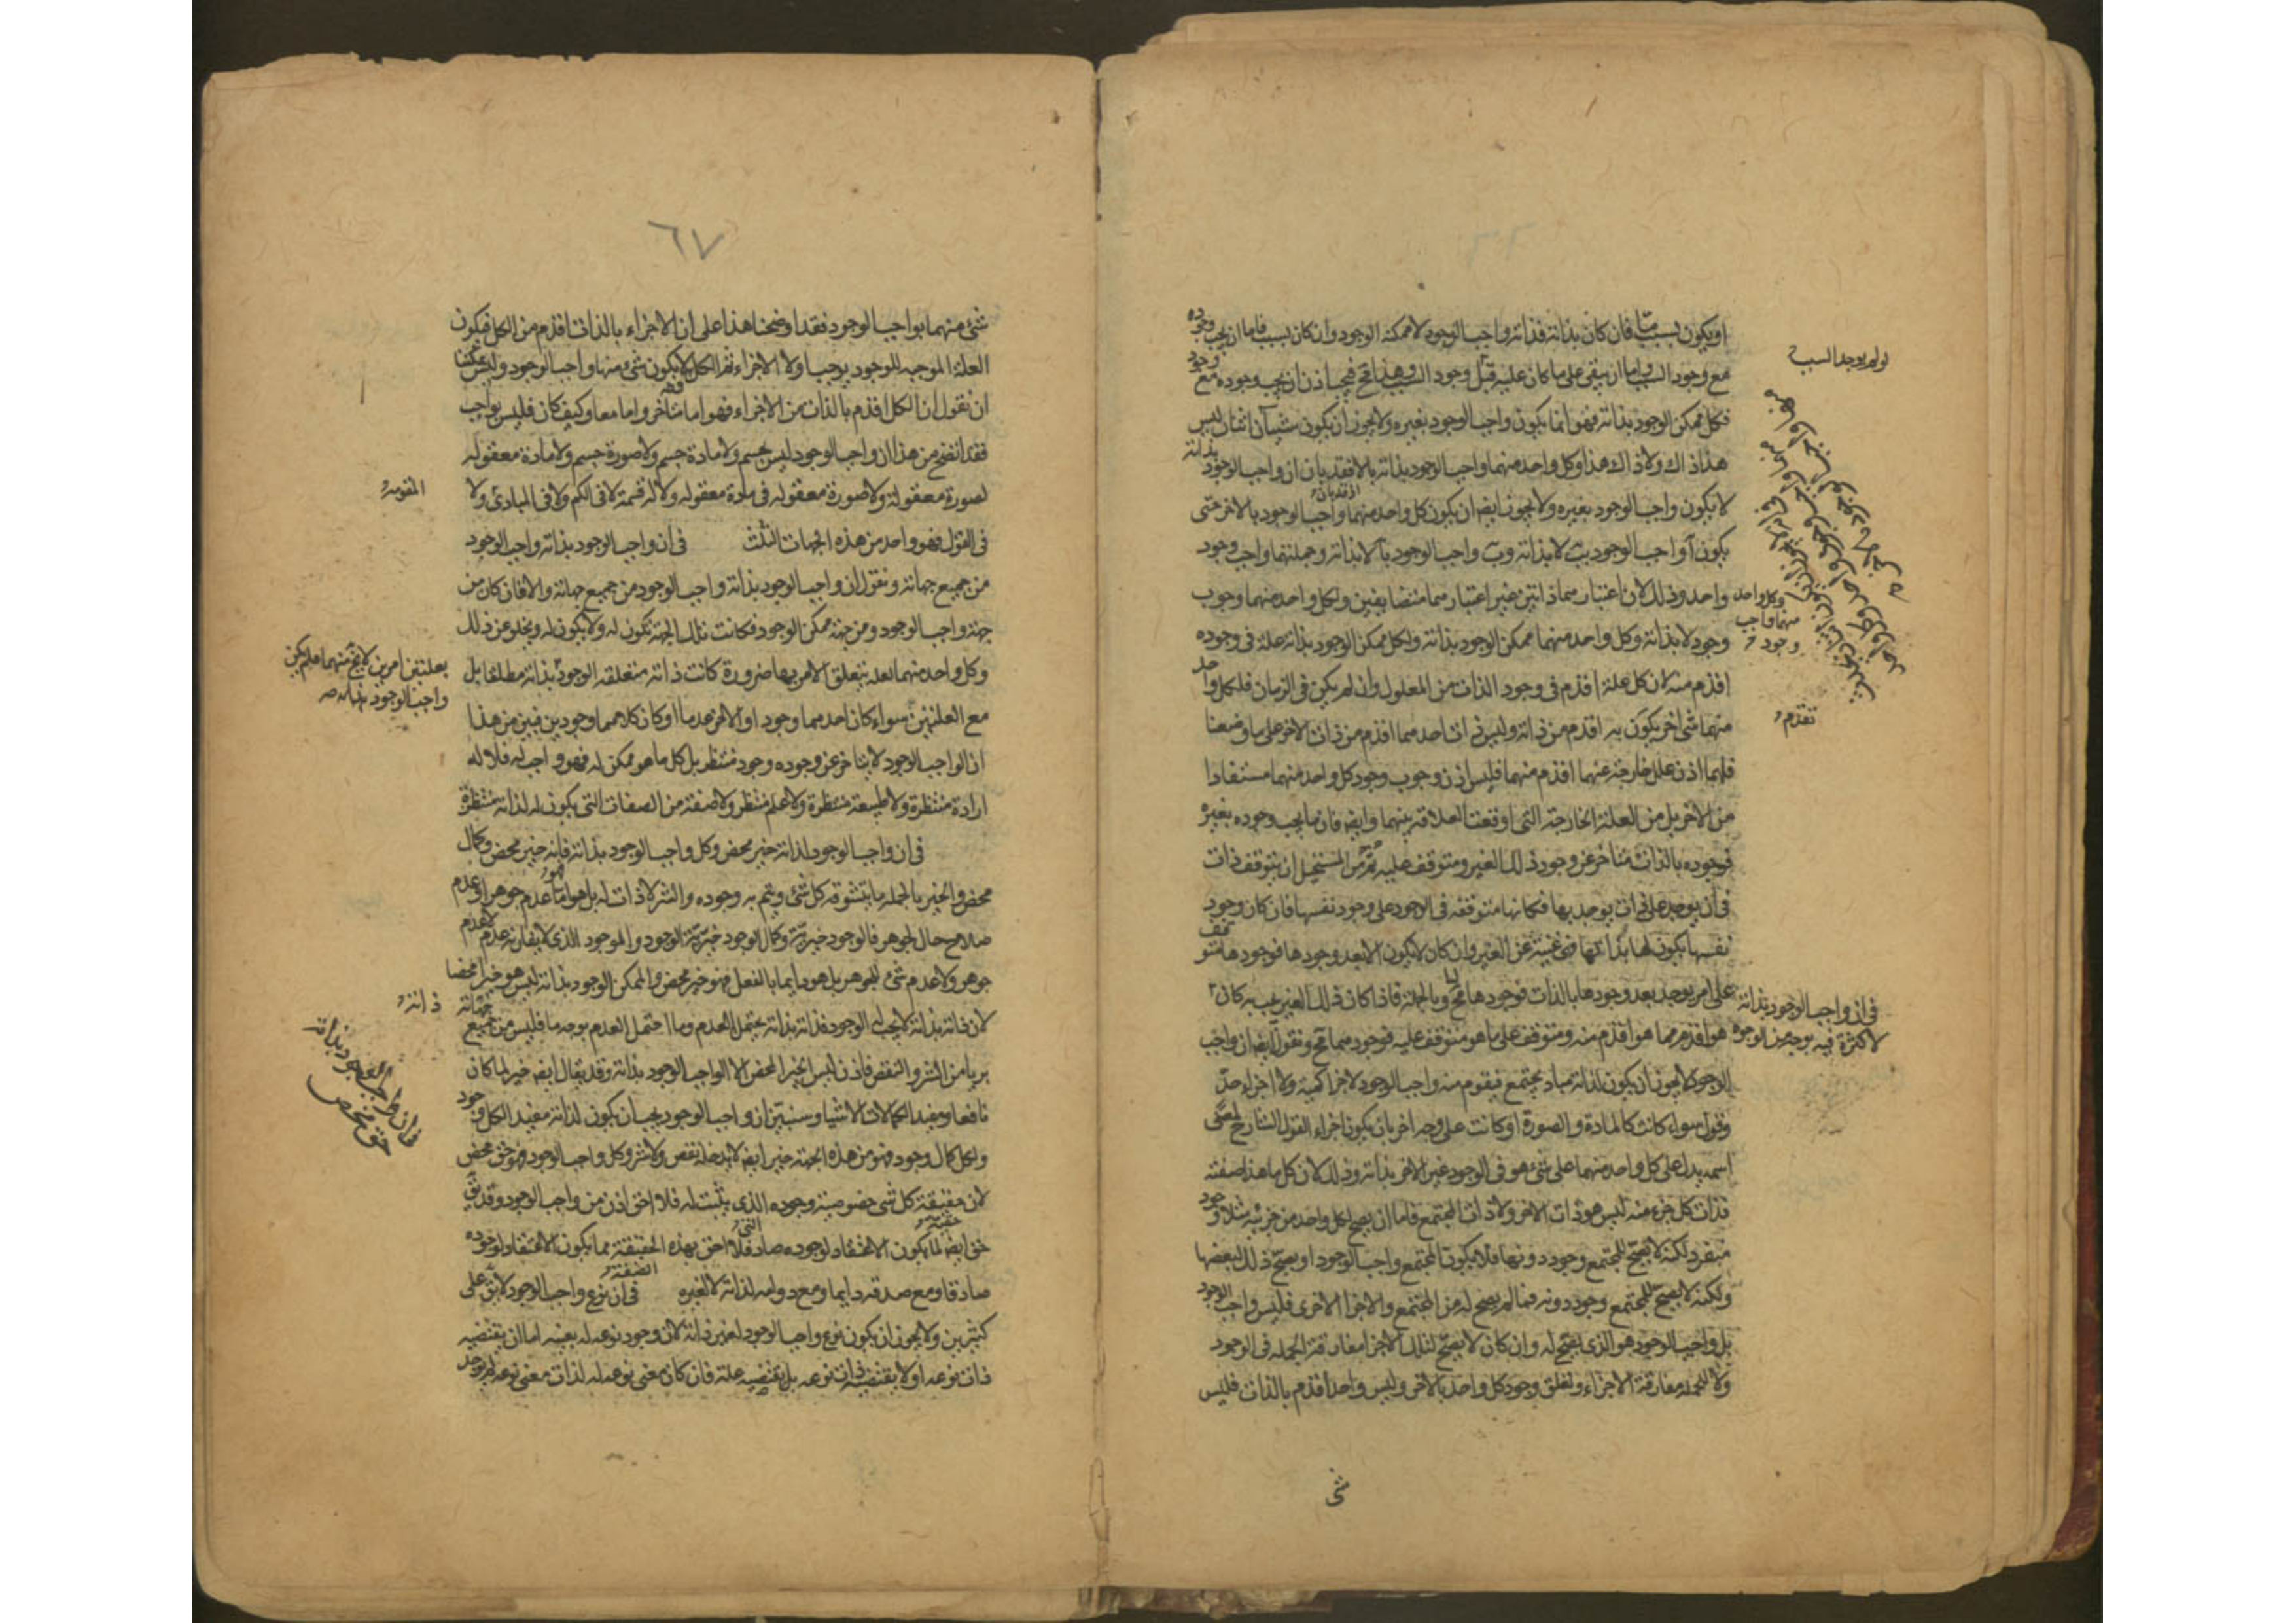 او يكون لسبب ما فان كان بذاته فذاته واجب الوجود لا ممكنة الوجود وان كان بسبب فاما ان يجب وجوده
مع وجود السبب واما ان يبقى على ما كان عليه قبل وجود السبب وهذا مح فيجب اذن ان يجب وجوده مع وجود
فكل ممكن الوجود بذاته فهو انما يكون واجب الوجود بغيره ولا يجوز ان يكون شيأن اثنان ليس
هذا ذاك ولا ذاك هذا وكل واحد منهما واجب الوجود بذاته بالافقد بان ان واجب الوجود بذاته
لا يكون واجب الوجود بغيره ولا يجوز ايضا ان يكون كل واحد منهما واجب الوجود بالاخر حتى
يكون آ واجب الوجود بب لا بذاته وب واجب الوجود بآ لا بذاته وجملتهما واجب وجود
واحد وذلك لان اعتبارهما ذاتين غير اعتبارهما متضايفين ولكل واحد منهما وجوب
وجود لا بذاته وكل واحد منهما ممكن الوجود بذاته ولكل ممكن الوجود بذاته علة فى وجوده
اقدم منه لان كل علة اقدم فى وجود الذات من المعلول وان لم يكن فى الزمان فلكل واحد
منهما شى اخر يكون به اقدم من ذاته وليس ذات احدهما اقدم من ذات الاخر على ما وضعنا
فلهما اذن علل خارجة عنهما اقدم منهما فليس اذن وجوب وجود كل واحد منهما مستفادا
من الاخر بل من العلة الخارجة التى اوقعت العلاقة بينهما وايضا فان ما يجب وجوده بغيره
فوجوده بالذات متاخر عن وجود ذلك الغير ومتوقف عليه ثم من المستحيل ان يتوقف ذات
فى ان يوجد على ذات يوجد بها فكانها متوقفه فى الوجود على وجود نفسها فان كان وجود
نفسها يكون لها بذاتها فهى غنية عن الغير وان كان لا يكون الا بعد وجودها فوجودها متوقف
على امر يوجد بعد وجودها بالذات فوجودها مح وبالجملة فاذا كان ذلك الغير يجب به كان
هو اقدم مما هو اقدم منه ومتوقف على ما هو متوقف عليه فوجودهما مح ونقول ايضا ان واجب
الوجود لا يجوز ان يكون لذاته مباد يجتمع فيقوم منه واجب الوجود لا اجزا كمية ولا اجزا حد
وقول سواء كانت كالمادة والصورة او كانت على وجه اخر بان يكون اجزاء القول الشارح لمعنى
اسمه يدل على كل واحد منهما على شئ هو فى الوجود غير الاخر بذاته وذلك لان كل ما هذا صفته
فذات كل جزء منه ليس هو ذات الاخر ولا ذات المجتمع فاما ان يصح لكل واحد من جزئيه مثلا وجود
منفرد لكنه لا يصح للمجتمع وجود دونها فلا يكون المجتمع واجب الوجود او يصح ذلك لبعضها
ولكنه لا يصح للمجتمع وجود دونه فما لم يصح له من المجتمع والاجزا الاخرى فليس واجب الوجود
بل واجب الوجود هو الذى يصح له وان كان لا يصح لتلك الاجزا مفارقة الجمله فى الوجود
ولا للجمله مفارقة الاجزاء وتعلق وجود كل واحد بالاخر وليس واحد اقدم بالذات فليس
شى
لو لم يوجد السبب
وكل واحد
منهما واجب
وجود
تقدم
فى ان واجب الوجود بذاته
لا كثرة فيه بوجه من الوجوه
٦٧
شئ منهما بواجب الوجود فقد اوضحنا هذا على ان الاجزاء بالذات اقدم من الكل فيكون
العلة الموجبه للوجود يوجب اولا الاجزاء ثم الكل ولا يكون شئ منها واجب الوجود وليس يمكننا
ان نقول ان الكل اقدم بالذات من الاجزاء فهو اما متاخر واما معا وكيف كان فليس بواجب
فقد اتضح من هذا ان واجب الوجود ليس بجسم ولا مادة جسم ولا صورة جسم ولا مادة معقوله
لصورة معقولة ولا صورة معقوله فى مادة معقوله ولا له قسمة لا فى الكم ولا فى المبادئ ولا
فى القول فهو واحد من هذه الجهات الثلث فى ان واجب الوجود بذاته واجب الوجود
من جميع جهاته ونقول ان واجب الوجود بذاته واجب الوجود من جميع جهاته والا فان كان من
جهة واجب الوجود ومن جهة ممكن الوجود فكانت تلك الجهة تكون له ولا يكون له ويخلو عن ذلك
وكل واحد منهما لعلة يتعلق الامر بها ضرورة كانت ذاته متعلقه الوجود بذاته مطلقا بل
مع العلتين سواء كان احدهما وجودا والاخر عدما او كان كلاهما وجودين فبين من هذا
ان الواجب الوجود لا يتاخر عن وجوده وجود منتظر بل كل ما هو ممكن له فهو واجب له فلا له
ارادة منتظرة ولا طبيعة منتظرة ولا علم منتظر ولا صفة من الصفات التى يكون له لذاته منتظرة
فى ان واجب الوجود لذاته خير محض وكل واجب الوجود بذاته فانه خير محض وكمال
محض والخير بالجمله ما يتشوقه كل شئ ويتم به وجوده والشر لا ذات له بل هو اما عدم جوهر او عدم
صلاح حال لجوهر فالوجود خيرية وكمال الوجود خيرية الوجود والموجود الذى لا يقارنه عدم لا عدم
جوهر ولا عدم شئ للجوهر بل هو دايما بالفعل فهو خير محض والممكن الوجود بذاته ليس هو خيرا محضا
لان ذاته بذاته لا يجب له الوجود فذاته بذاته يحتمل العدم وما احتمل العدم بوجه ما فليس من جميع جهاته
بريا من الشر والنقص فاذن ليس الخير المحض الا الواجب الوجود بذاته وقد يقال ايضا خير لما كان
نافعا ومفيد الكمالات الاشيا وسنبين ان واجب الوجود يجب ان يكون لذاته مفيد الكل وجود
ولكل كمال وجود فهو من هذه الجهة خير ايضا لا يدخله نقص ولا شر وكل واجب الوجود فهو حق محض
لان حقيقة كل شى خصوصية وجوده الذى يثبت له فلا احق اذن من واجب الوجود وقد يق
حق ايضا لما يكون الاعتقاد لوجوده صادقا فلا احق بهذه الحقيقة مما يكون الاعتقاد لوجوده
صادقا ومع صدقه دايما ومع دوامه لذاته لا لغيره فى ان نوع واجب الوجود لا يق على
كثيرين ولا يجوز ان يكون نوع واجب الوجود لغير ذاته لان وجود نوعه له بعينه اما ان يقتضيه
ذات نوعه او لا يقتضيه ذات نوعه بل يقتضيه علة فان كان معنى نوعه له لذات معنى نوعه لم يوجد
المقومه
بعلتين امرين لا يخ منهما فلم يكن
واجب الوجود بذاته
ذاته